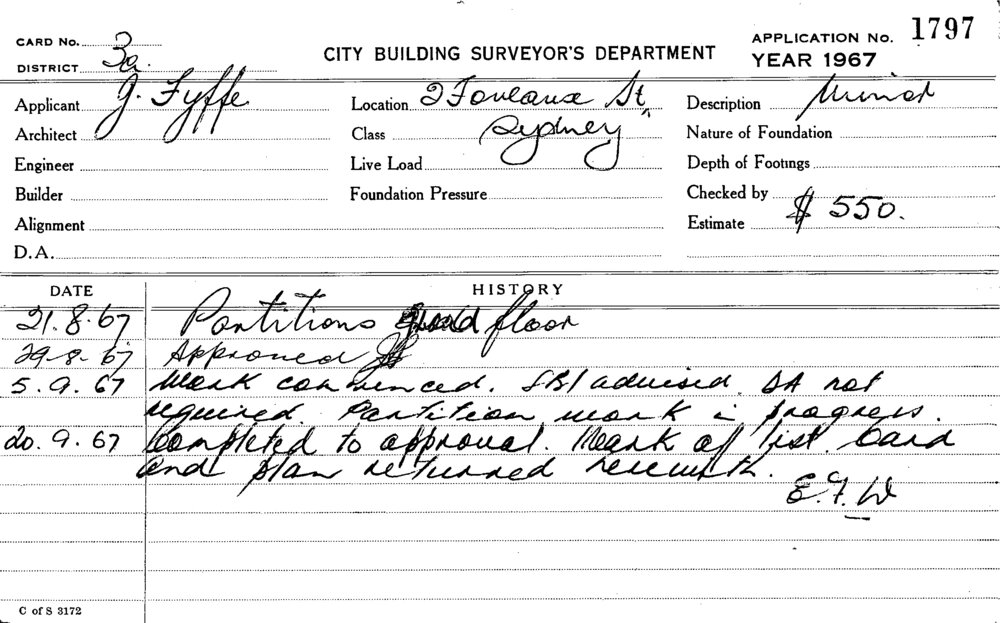 CARD No. 3a
DISTRICT
CITY BUILDING SURVEYOR'S DEPARTMENT
APPLICATION No. 1797
YEAR 1967
Applicant J. Fyffe
Location 2 Foveaux St,
Description Minor
Architect
Class Sydney
Nature of Foundation
Engineer
Live Load
Depth of Footings
Builder
Foundation Pressure
Checked by
Alignment
Estimate $ 550.
D.A.
DATE HISTORY
21.8.67 Partitions floor
29-8-67 Approved
5.9.67 Work commenced. SBI advised DA not
required. Partition work in progress.
20.9.67 Completed to approval. Mark off list. Card
and plan returned herewith.
E.F.W
C of S 3172